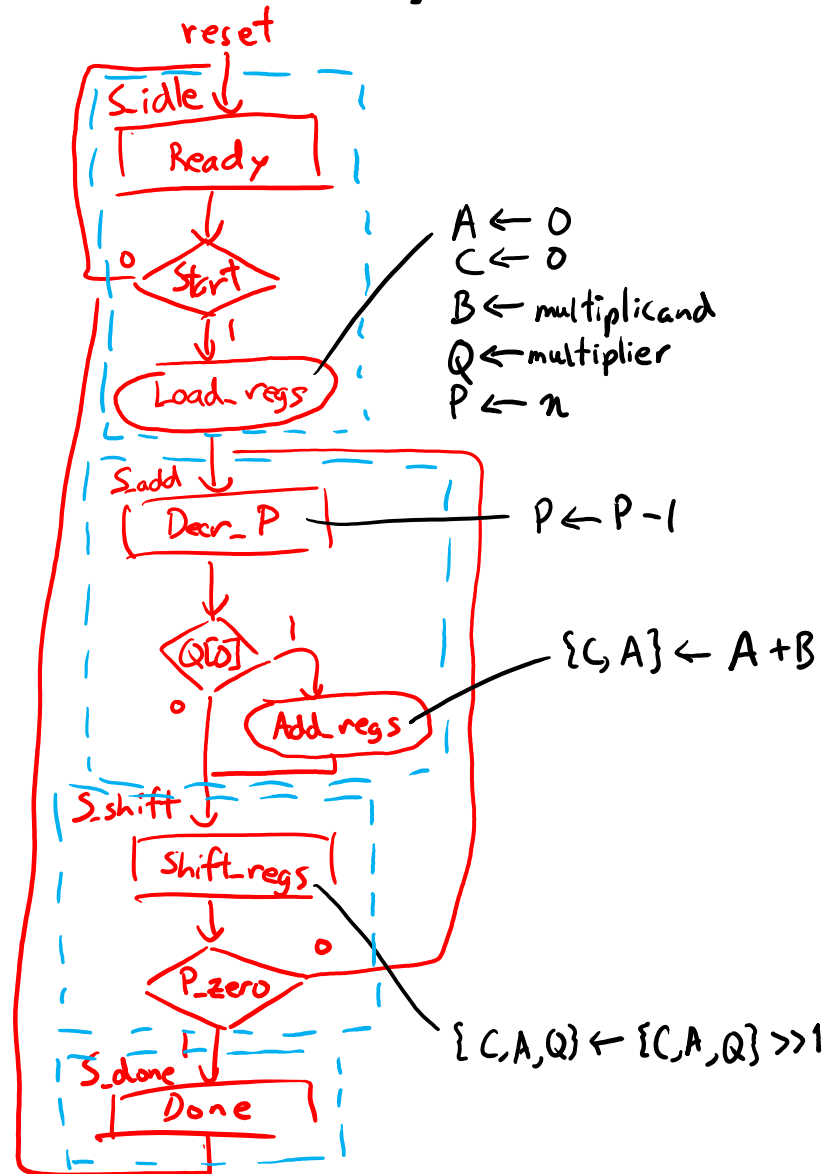 reset
S_idle
Ready
0
Start
1
Load_regs
A ← 0
C ← 0
B ← multiplicand
Q ← multiplier
P ← n
S_add
Decr_P
P ← P - 1
Q[0]
1
0
Add_regs
{C, A} ← A + B
S_shift
Shift_regs
0
P_zero
{C,A,Q} ← {C,A,Q} >> 1
1
S_done
Done